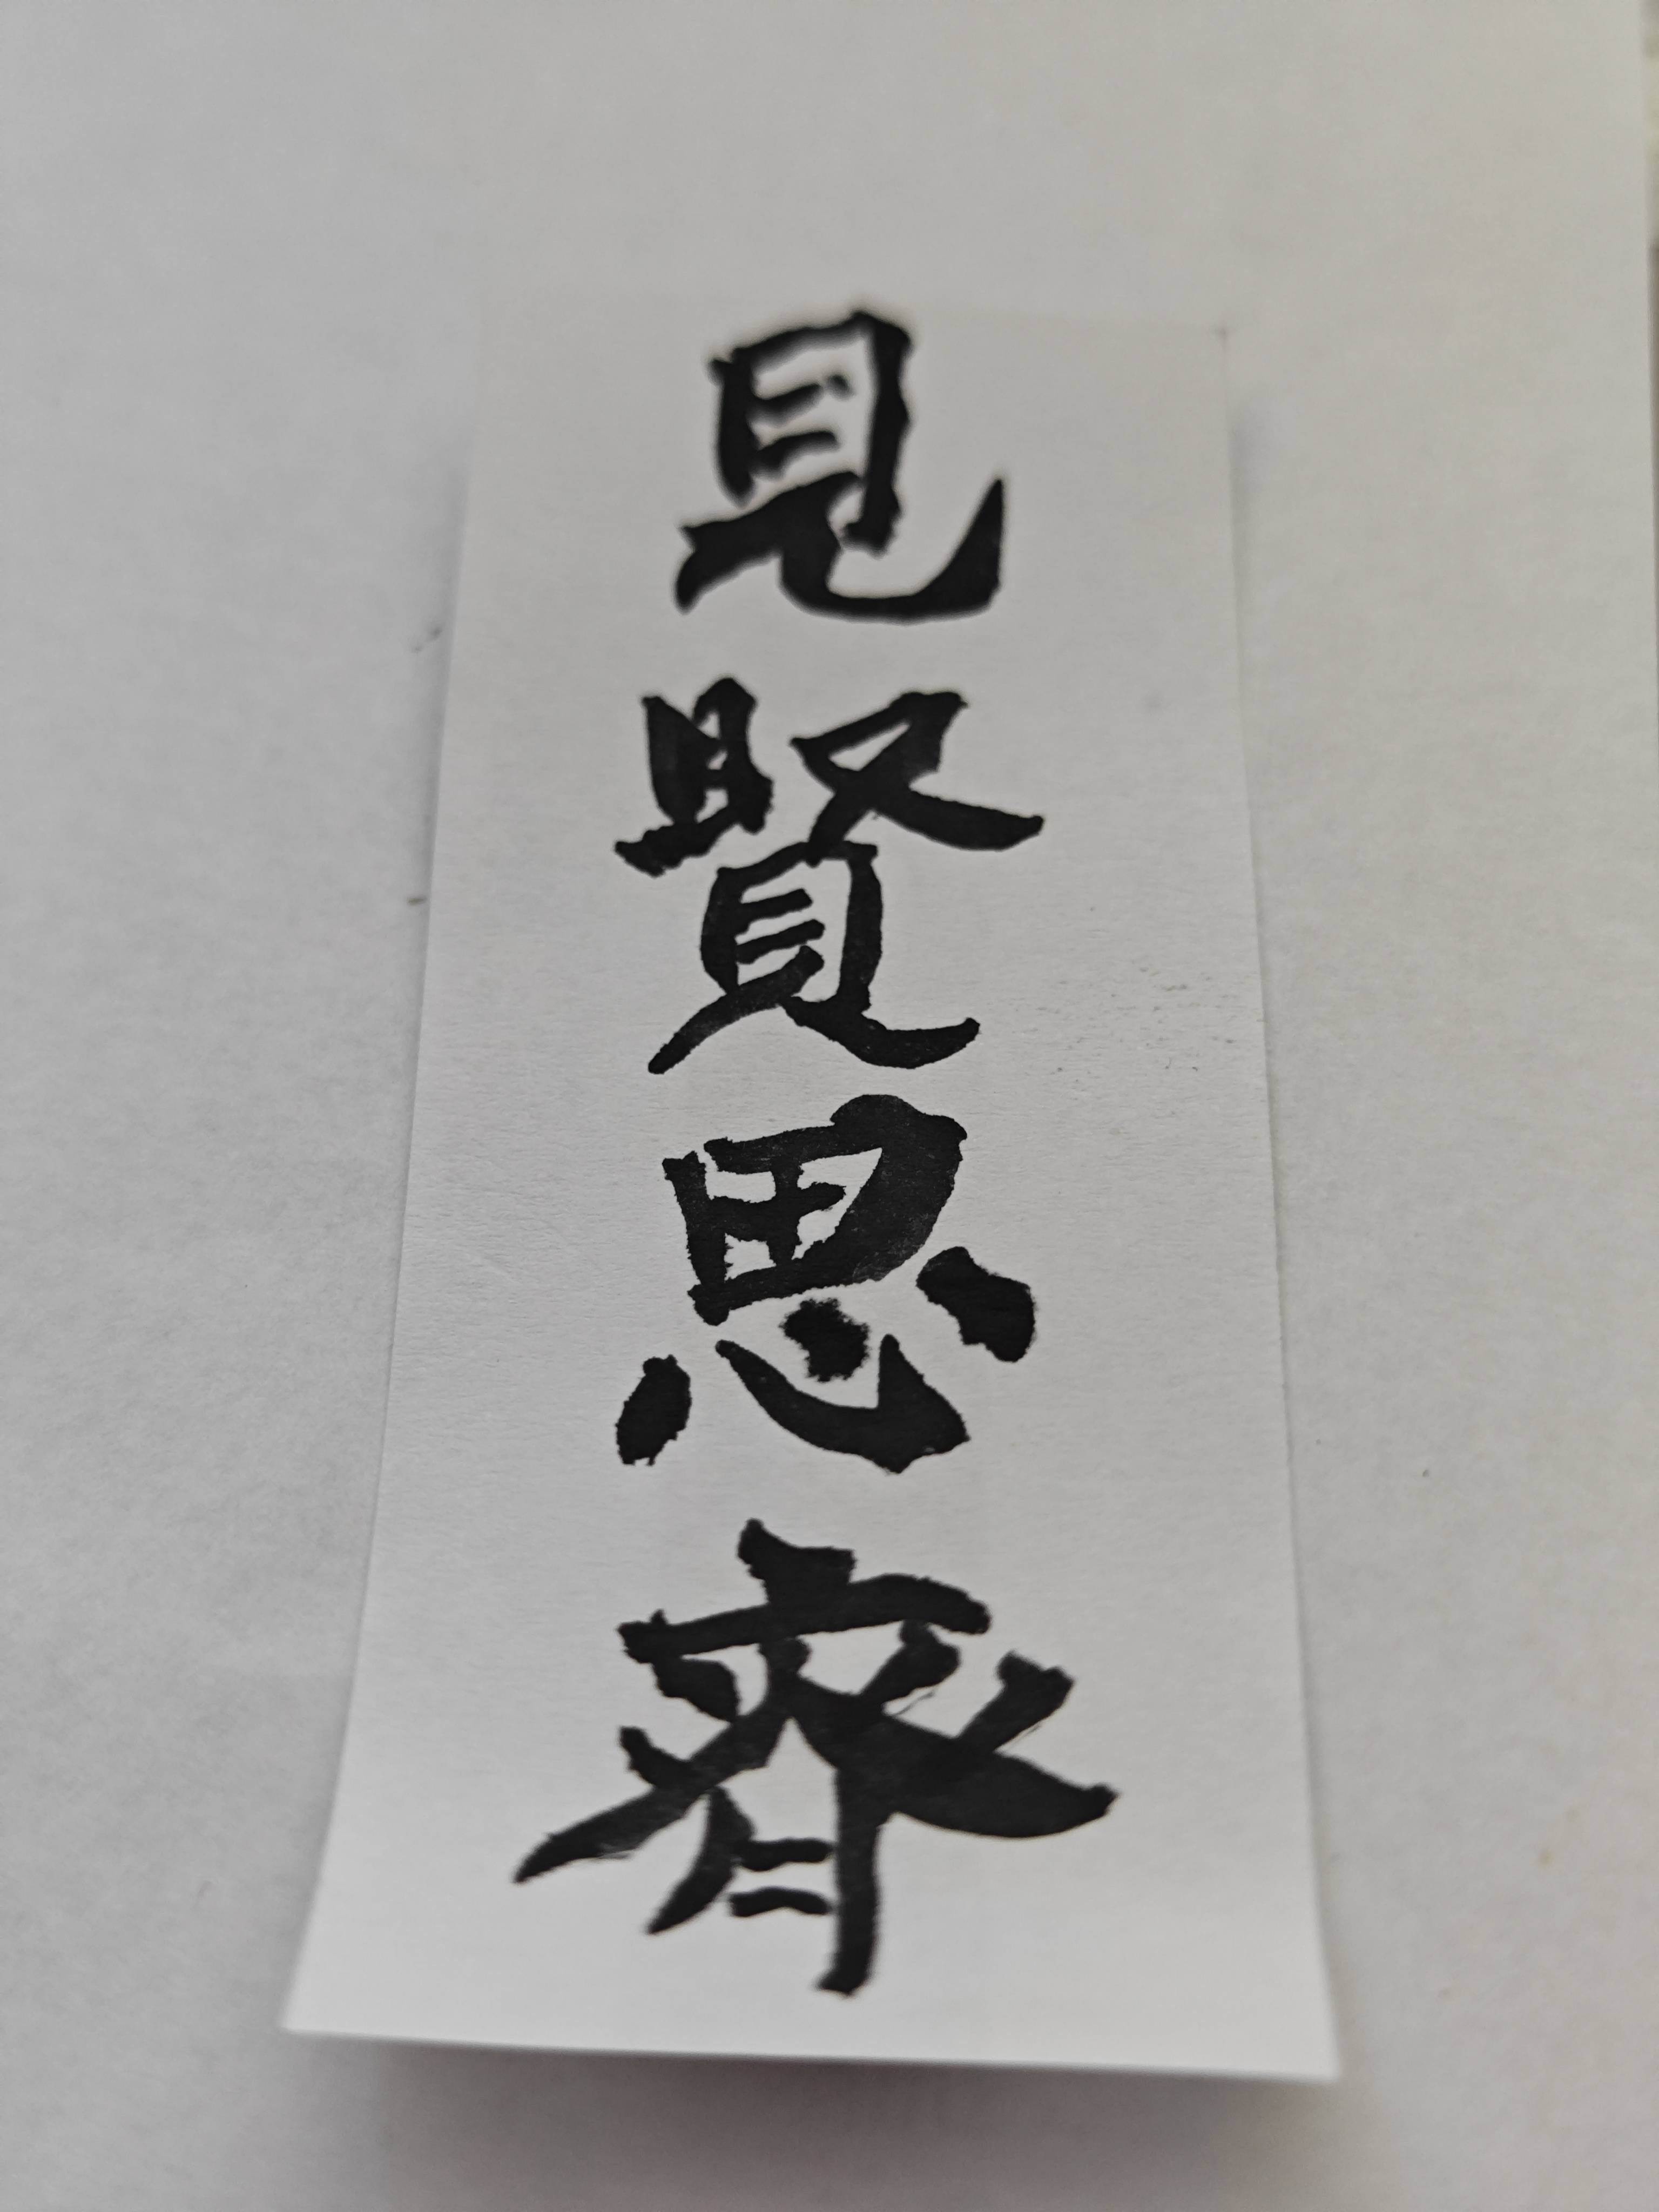 見賢思齊